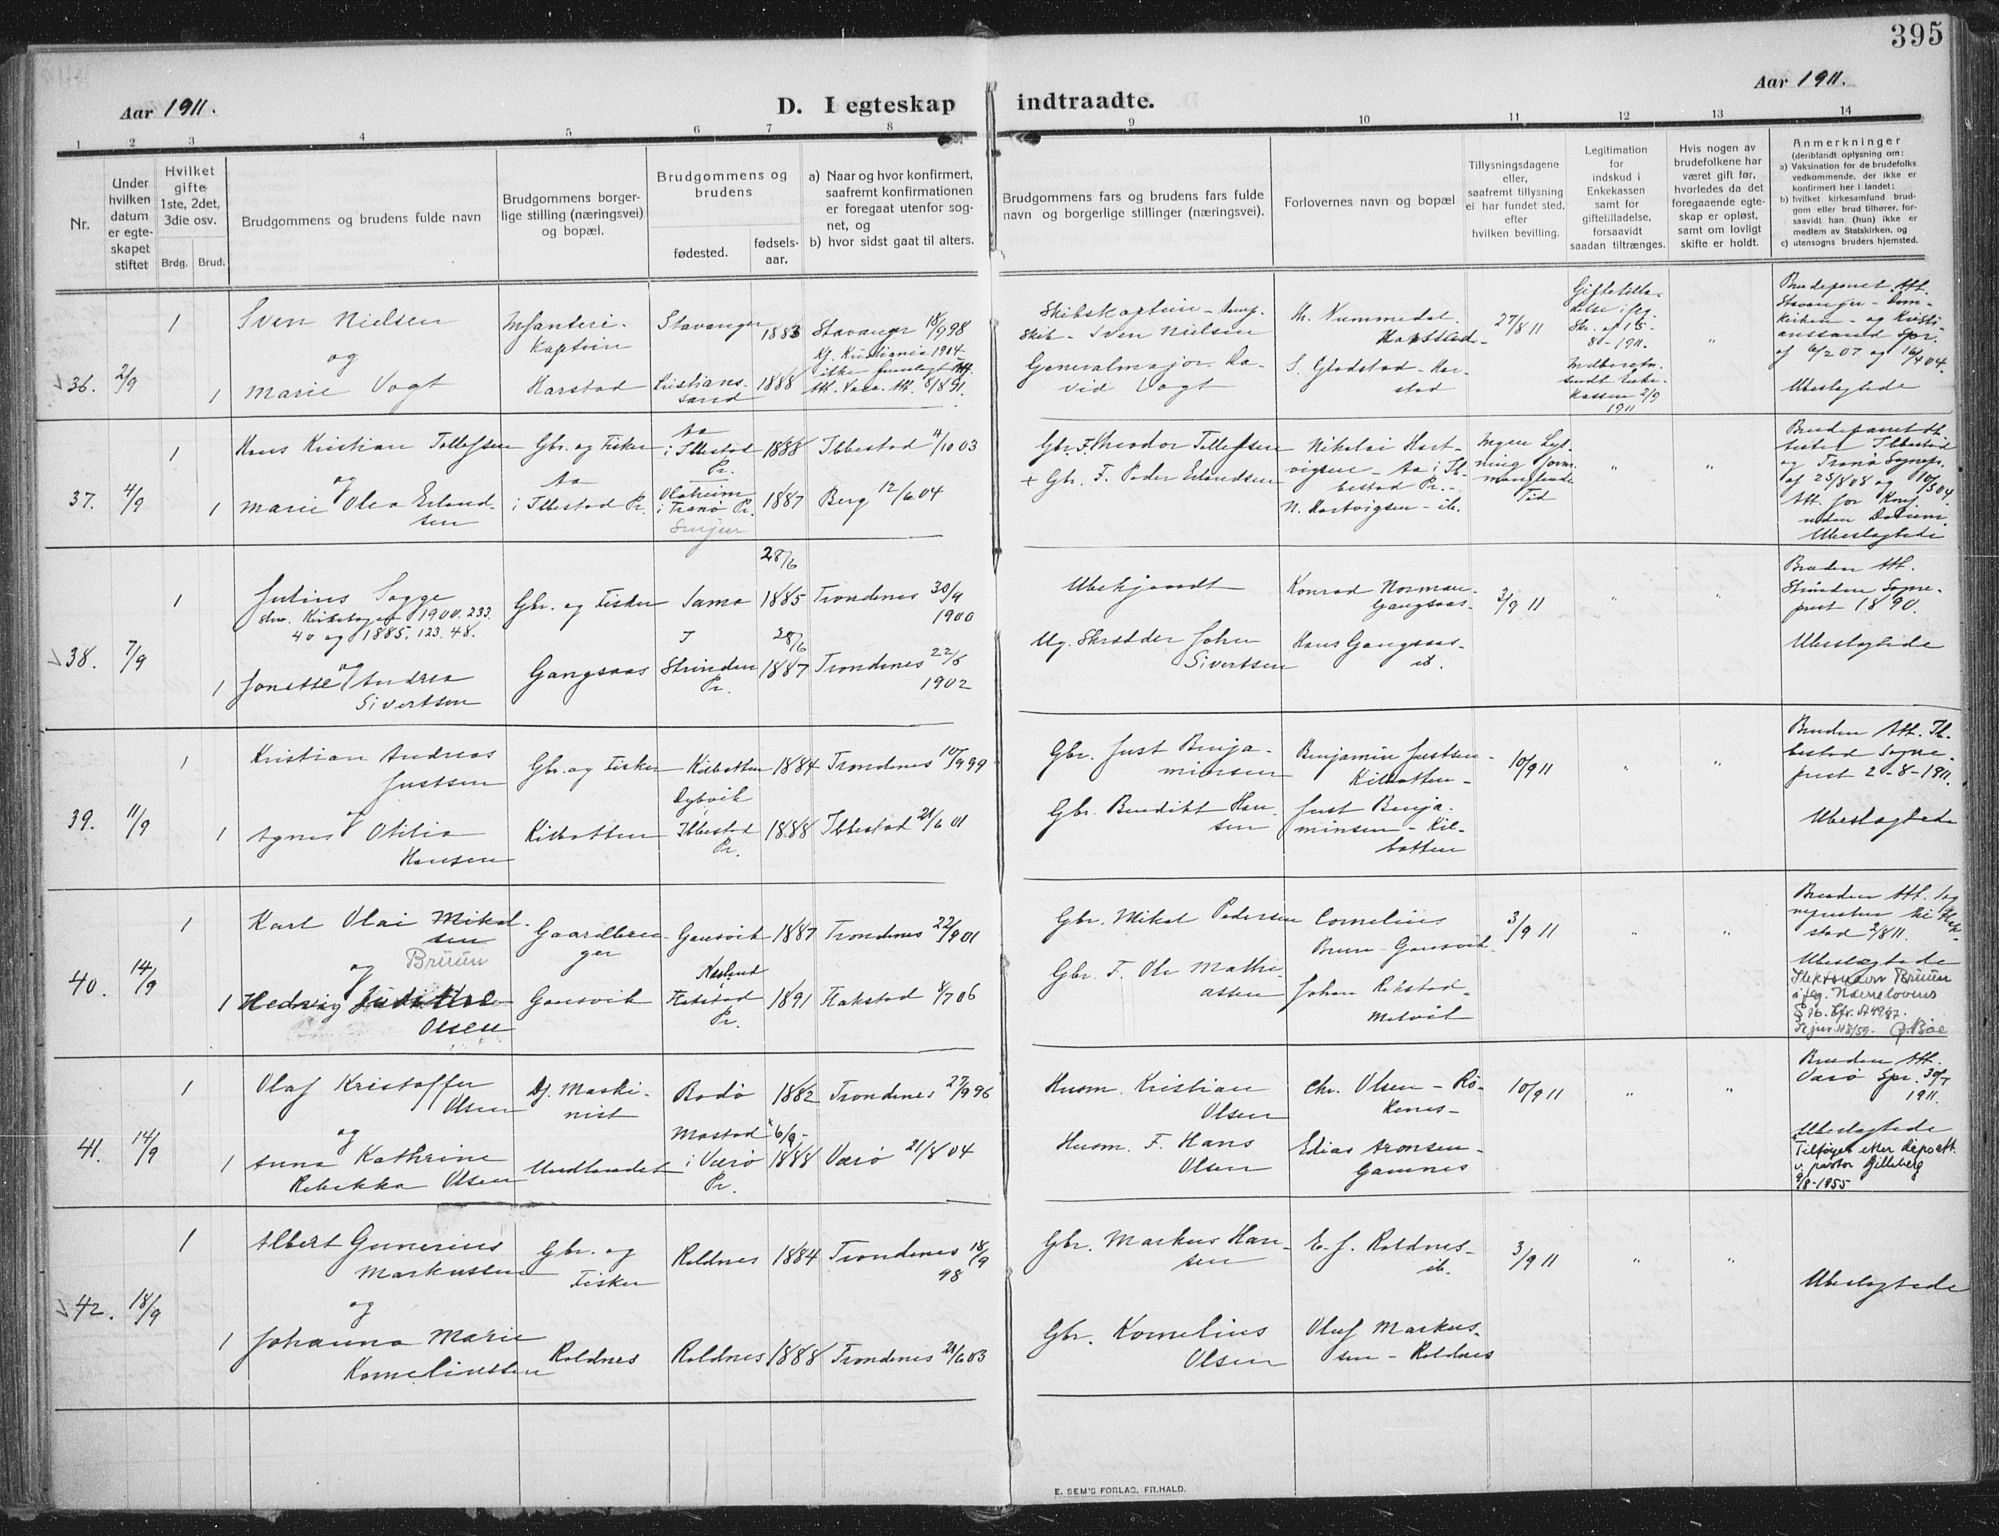 395
Aar 1911.
D. I egteskap indtraadte.
Aar 1911.
1 2 3 4 5 6 7 8 9 10 11 12 13 14
Nr.
Under
hvilken
datum
er egte-
skapet
stiftet
Hvilket
gifte
1ste, 2det,
3die osv.
Brdg. Brud.
Brudgommens og brudens fulde navn
Brudgommens borger-
lige stilling (næringsvei)
og bopæl.
Brudgommens og
brudens
fødested.
fødsels-
aar.
a) Naar og hvor konfirmert,
saafremt konfirmationen
er foregaat utenfor sog-
net, og
b) hvor sidst gaat til alters.
Brudgommens fars og brudens fars fulde
navn og borgerlige stillinger (næringsvei).
Forlovernes navn og bopæl
Tillysningsdagene
eller,
saafremt tillysning
ei har fundet sted,
efter
hvilken bevilling.
Legitimation
for
indskud i
Enkekassen
samt for
giftetilladelse,
forsaavidt
saadan tiltrænges.
Hvis nogen av
brudefolkene har
været gift før,
hvorledes da det
foregaaende egte-
skap er opløst,
samt om lovligt
skifte er holdt.
Anmerkninger
(deriblandt oplysning om:
a) Vaksination for de brudefolks
vedkommende, der ikke er
konfirmert her i landet;
b) hvilket kirkesamfund brud-
gom eller brud tilhører, for-
saavidt han (hun) ikke er
medlem av Statskirken, og
c) utensogns bruders hjemsted.
36. 2/9
1
1
Sven Nielsen
og
Marie Vogt
Infanteri-
kaptein
Harstad
Stavanger 1883
Kristians-
sand 1888
Stavanger 18/9 98
Kristiania 1904
Skibskaptein
Sven Nielsen
Generalmajor Da-
vid Vogt
Nummedal
Harstad
S. Gladstad - Har-
stad
27/8 11
Giftetilla-
8 - 1911.
Kassen 2/9
1911
"
Stavanger Dom-
kirken og Kristi-
anssand Spr.
af 6/2 07 og 16/4 04.
Ubeslægtede
37. 4/9
1
1
Hans Kristian Tollefsen
og
Marie Olea Erland-
sen
Gbr. og Fisker
Aa
i Ibbestad Pr.
Aa
i Ibbestad
Pr. 1888
i Tranø Pr. 1887
Senjen
Ibbestad 4/10 03
Berg 12/6 04
Gbr. F. Theodor Tollefsen
+ Gbr. F. Peder Erlandsen
Nikolai Hart-
vigsen - Aa i Ib-
bestad Pr. -
N. Hartvigsen - ib.
Ingen Lys-
ning
Tid
"
"
Ibbestad
og Tranø Sognepr.
af 23/8 08 og 10/5 04
Ubeslægtede
38. 7/9
1
1
Julius Sagge
skr. Kirkebogen 1900. 233.
40 og 1885. 123. 48.
og
Jonette Andrea
Sivertsen
Gbr. og Fisker
Gangsaas
Sama
28/6
1885
Strinden
Pr.
28/6
1887
Trondenes 30/9
1900
Trondenes 22/6
1902
Ubekjendt
Ug. Skrædder Johan
Sivertsen
Konrad Norman
Gangsaas
Hans Gangsaas-
ib.
3/9 11
"
"
Bruden Att.
Strinden Sogne-
prest 1890.
Ubeslægtede
39. 11/9
1
1
Kristian Andreas
Justsen
og
Agnes Otilia
Hansen
Gbr. og Fisker
Kilbotten
Kilbotten 1884
Dybvik
Ibbestad
Pr. 1888
Trondenes 10/9 99
Ibbestad 21/6 01
Gbr. Just Benja-
minsen
Gbr. Bendikt Han-
sen
Benjamin Justsen -
Kilbotten -
Just Benja-
minsen - Kil-
botten
10/9 11
"
"
Bruden Att. Ib-
bestad Sogne-
prest 2-8-1911.
Ubeslægtede
40. 14/9
1
1
Karl Olai Mikal-
sen
og Brüün
Hedvig
Olsen
Gaardbru-
ger
Gausvik
Gausvik 1887
Pr. 1891
Trondenes 22/9 01
8/7 06
Gbr. Mikal Pedersen
Gbr. F. Ole Mathi-
assen
Cornelius
Bruun - Gausvik
Johan Rekstad -
Melvik
3/9 11
"
"
Bruden Att.
Ubeslægtede
Slektsnavn Brüün
i flg. Navnelovens
Bøe
41. 14/9
1
1
Olaf Kristoffer
Olsen
og
Anna Kathrine
Rebekka Olsen
Maski-
nist
Bodø 1882
Mostad
i Værø
Pr.
6/9-
1888
Trondenes 27/9 96
Værø 21/8 04
Husm. Kristian
Olsen
Husm. F. Hans
Olsen
Chr. Olsen - Rø-
kenes -
Edias Aronsen -
Gamnes
10/9 11
"
"
Bruden Att.
Værø Spr. 30/7
1911.
Ubeslægtede
Tilføyet etter dåpsatt.
v. pastor Gilleberg
9/8-1955
42. 18/9
1
1
Albert Gunerius
Markussen
og
Johanna Marie
Korneliussen
Gbr. og
Fisker
Roldnes
Roldnes 1884
Roldnes 1888
Trondenes 18/9
98
Trondenes 21/6 03
Gbr. Markus Han-
sen
Gbr. Kornelius
Olsen
E. J. Roldnes -
ib.
Oluf Markus-
sen - Roldnes
3/9 11
"
"
Ubeslægtede
E. SEM'S FORLAG. FR.HALD.